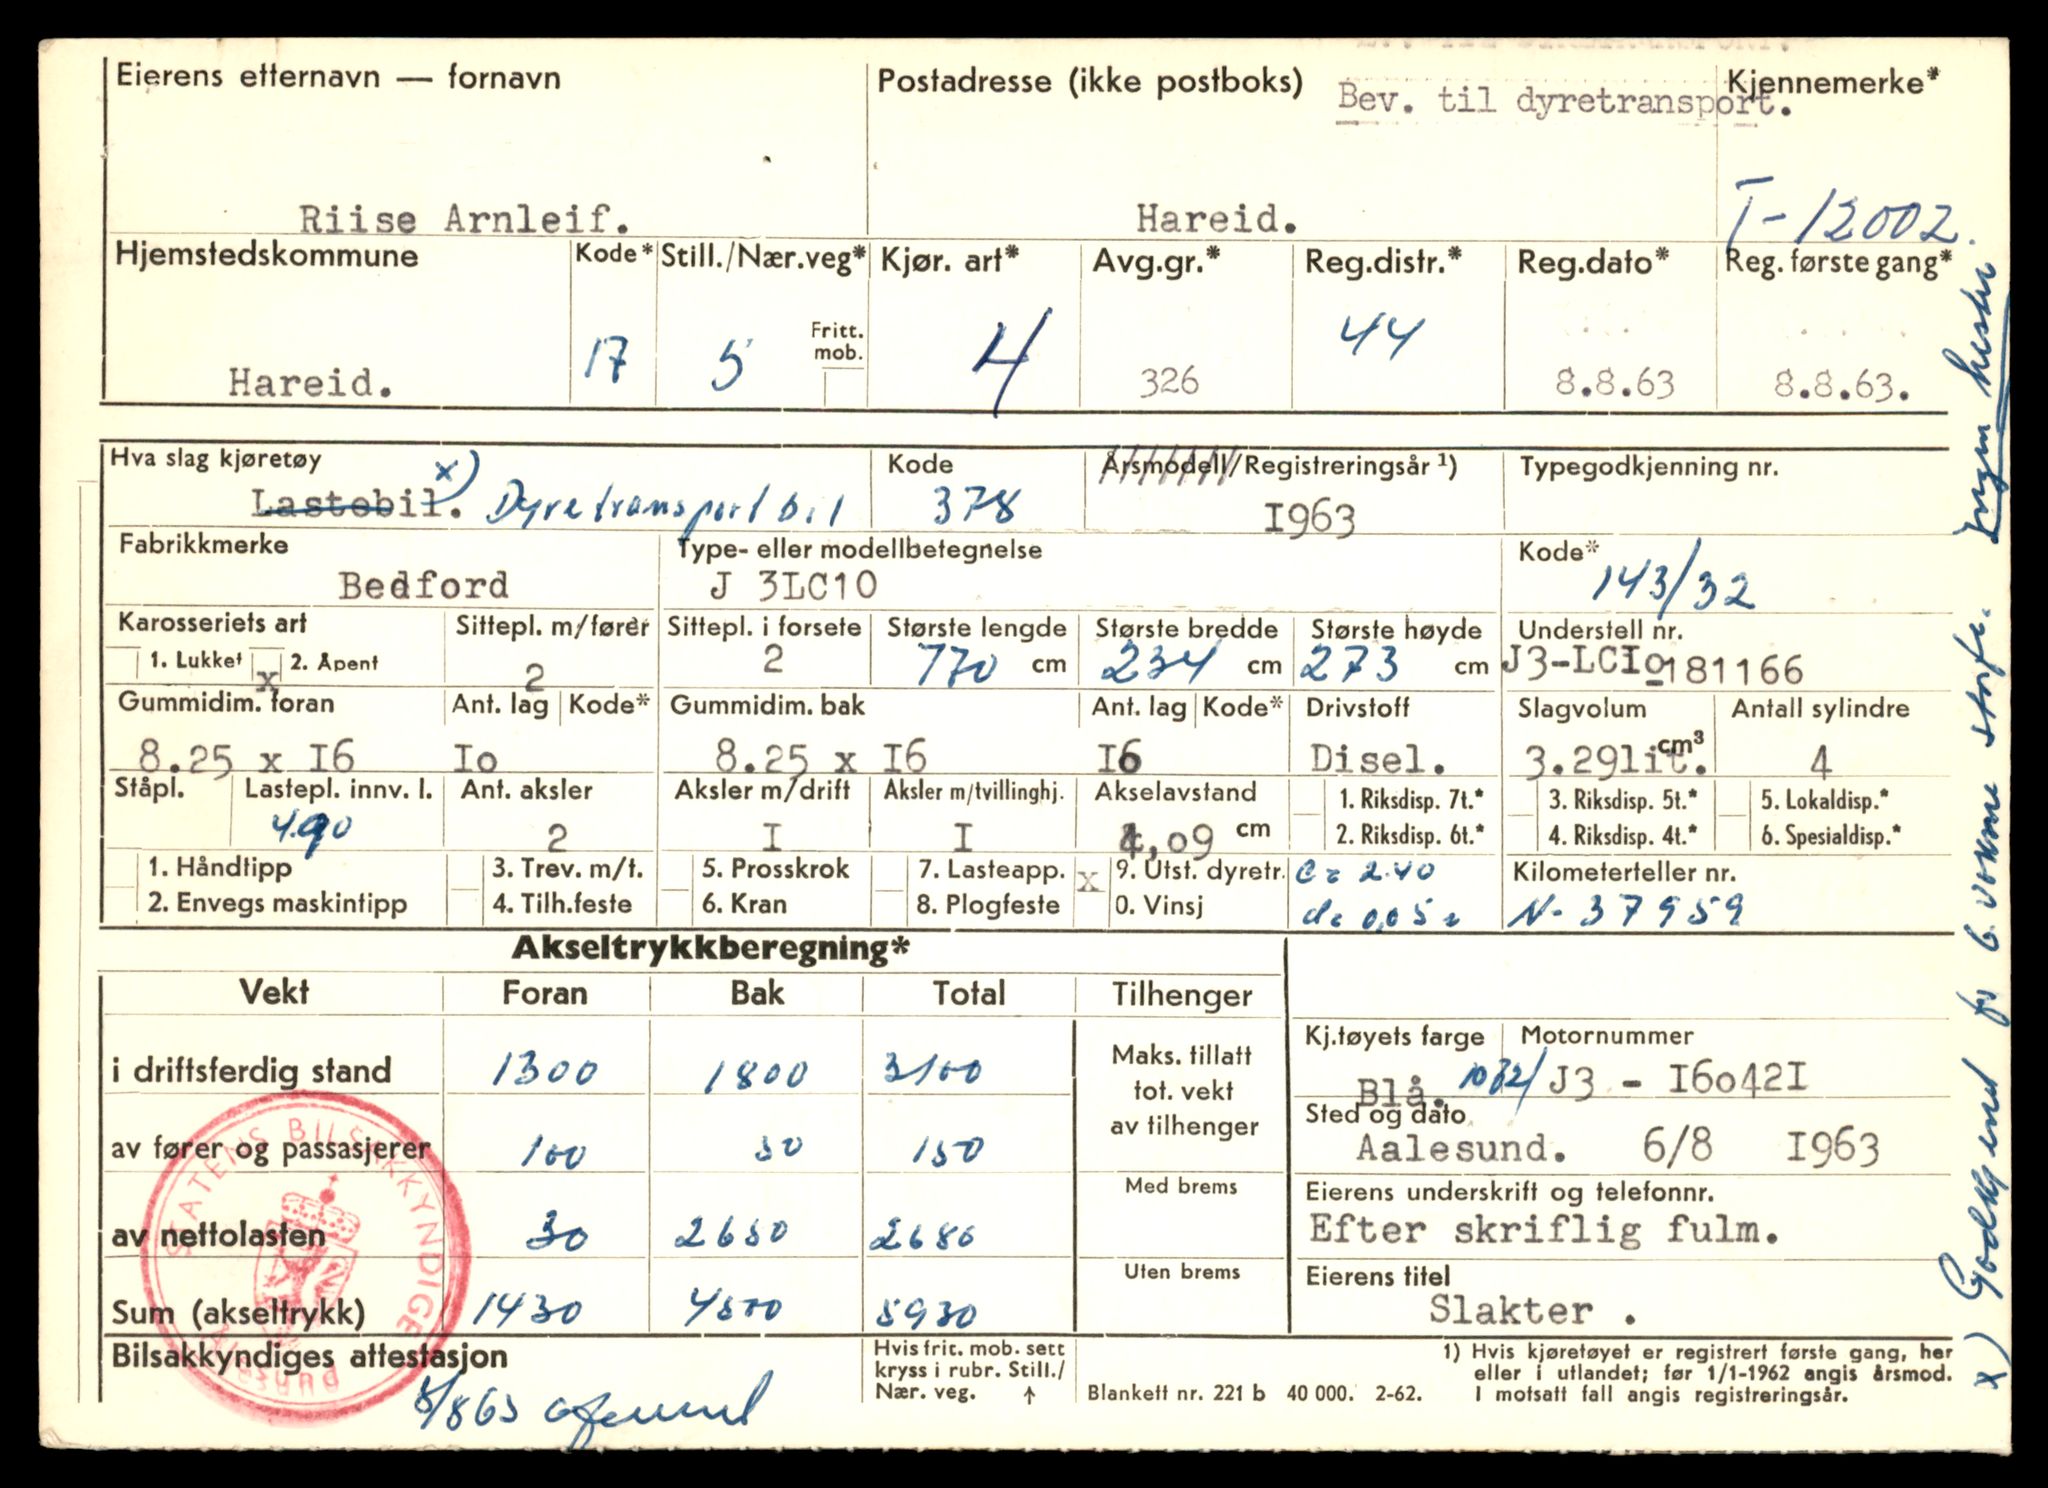 Eierens etternavn — fornavn
Postadresse (ikke postboks)
Bev. til dyretransport.
Kjennemerke*
Riise Arnleif.
Hareid.
T-12002.
Hjemstedskommune
Kode*
Still./Nær.veg*
Kjør. art*
Avg.gr.*
Reg.distr.*
Reg.dato*
Reg. første gang*
Hareid.
17
5
Fritt. mob.
4
326
44
8.8.63
8.8.63.
Hva slag kjøretøy
Kode
Årsmodell/Registreringsår ¹)
Typegodkjenning nr.
Lastebil. x) Dyretransportbil
378
I963
Fabrikkmerke
Type- eller modellbetegnelse
Kode*
Bedford
J 3LC10
143/32
Karosseriets art
Sittepl. m/fører
Sittepl. i forsete
Største lengde
Største bredde
Største høyde
Understell nr.
1. Lukket x 2. Åpent
2
2
770 cm
234 cm
273 cm
J3-LCIo181166
Gummidim. foran
Ant. lag
Kode*
Gummidim. bak
Ant. lag
Kode*
Drivstoff
Slagvolum
Antall sylindre
8.25 x I6
Io
8.25 x I6
I6
Disel.
3.29lit. cm³
4
Ståpl.
Lastepl. innv. l.
Ant. aksler
Aksler m/drift
Aksler m/tvillinghj.
Akselavstand
1. Riksdisp. 7t.*
3. Riksdisp. 5t.*
5. Lokaldisp.*
4.90
2
I
I
4,o9 cm
2. Riksdisp. 6t.*
4. Riksdisp. 4t.*
6. Spesialdisp.*
1. Håndtipp
3. Trev. m/t.
5. Prosskrok
7. Lasteapp.
x 9. Utst. dyretr.
c = 2.40
Kilometerteller nr.
2. Envegs maskintipp
4. Tilh.feste
6. Kran
8. Plogfeste
0. Vinsj
d = 0,05
N- 37959
Akseltrykkberegning*
Vekt
Foran
Bak
Total
Tilhenger
i driftsferdig stand
1300
1800
3100
Maks. tillatt
tot. vekt
av tilhenger
Kj.tøyets farge
Motornummer
Blå. 1032/
J3 - I6o42I
av fører og passasjerer
100
50
150
Sted og dato
Aalesund. 6/8 I963
Med brems
av nettolasten
30
2650
2680
Eierens underskrift og telefonnr.
Efter skriflig fulm.
Uten brems
Sum (akseltrykk)
1430
4500
5930
Eierens titel
Slakter .
STATENS BILSAKKYNDIGE
Bilsakkyndiges attestasjon
8/863
Hvis frit. mob. sett
kryss i rubr. Still./
Nær. veg. ↑
Blankett nr. 221 b 40 000. 2-62.
1) Hvis kjøretøyet er registrert første gang, her
eller i utlandet; før 1/1-1962 angis årsmod.
I motsatt fall angis registreringsår.
x) Godkjent for 6 voksne storfe. Ingen hester.